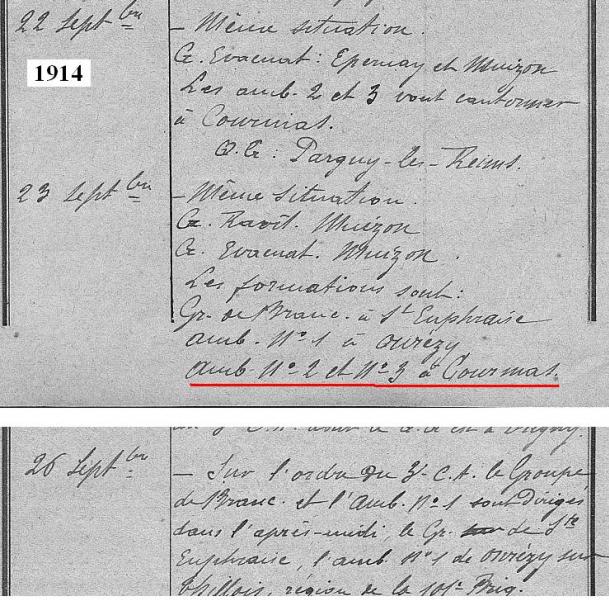 22 Septbre — Même situation.
1914
G. Evacuat: Epernay et Muizon
Les amb. 2 et 3 vont cantonner
à Courmas.
Q.G: Pargny-les-Reims.
23 Septbre — Même situation.
G. Ravit. Muizon
G. Evacuat. Muizon.
Les formations sont:
Gr. de Branc. à Ste Euphraise
amb. No 1 à Ourézy
amb. No 2 et No 3 à Courmas.
26 Septbre — Sur l'ordre du 3e C.A. le Groupe
de Branc. et l'amb. No 1 sont dirigés
dans l'après-midi, le Gr. de Ste
Euphraise, l'amb. No 1 de Ourézy sur
Thillois, région de la 101e Brig.